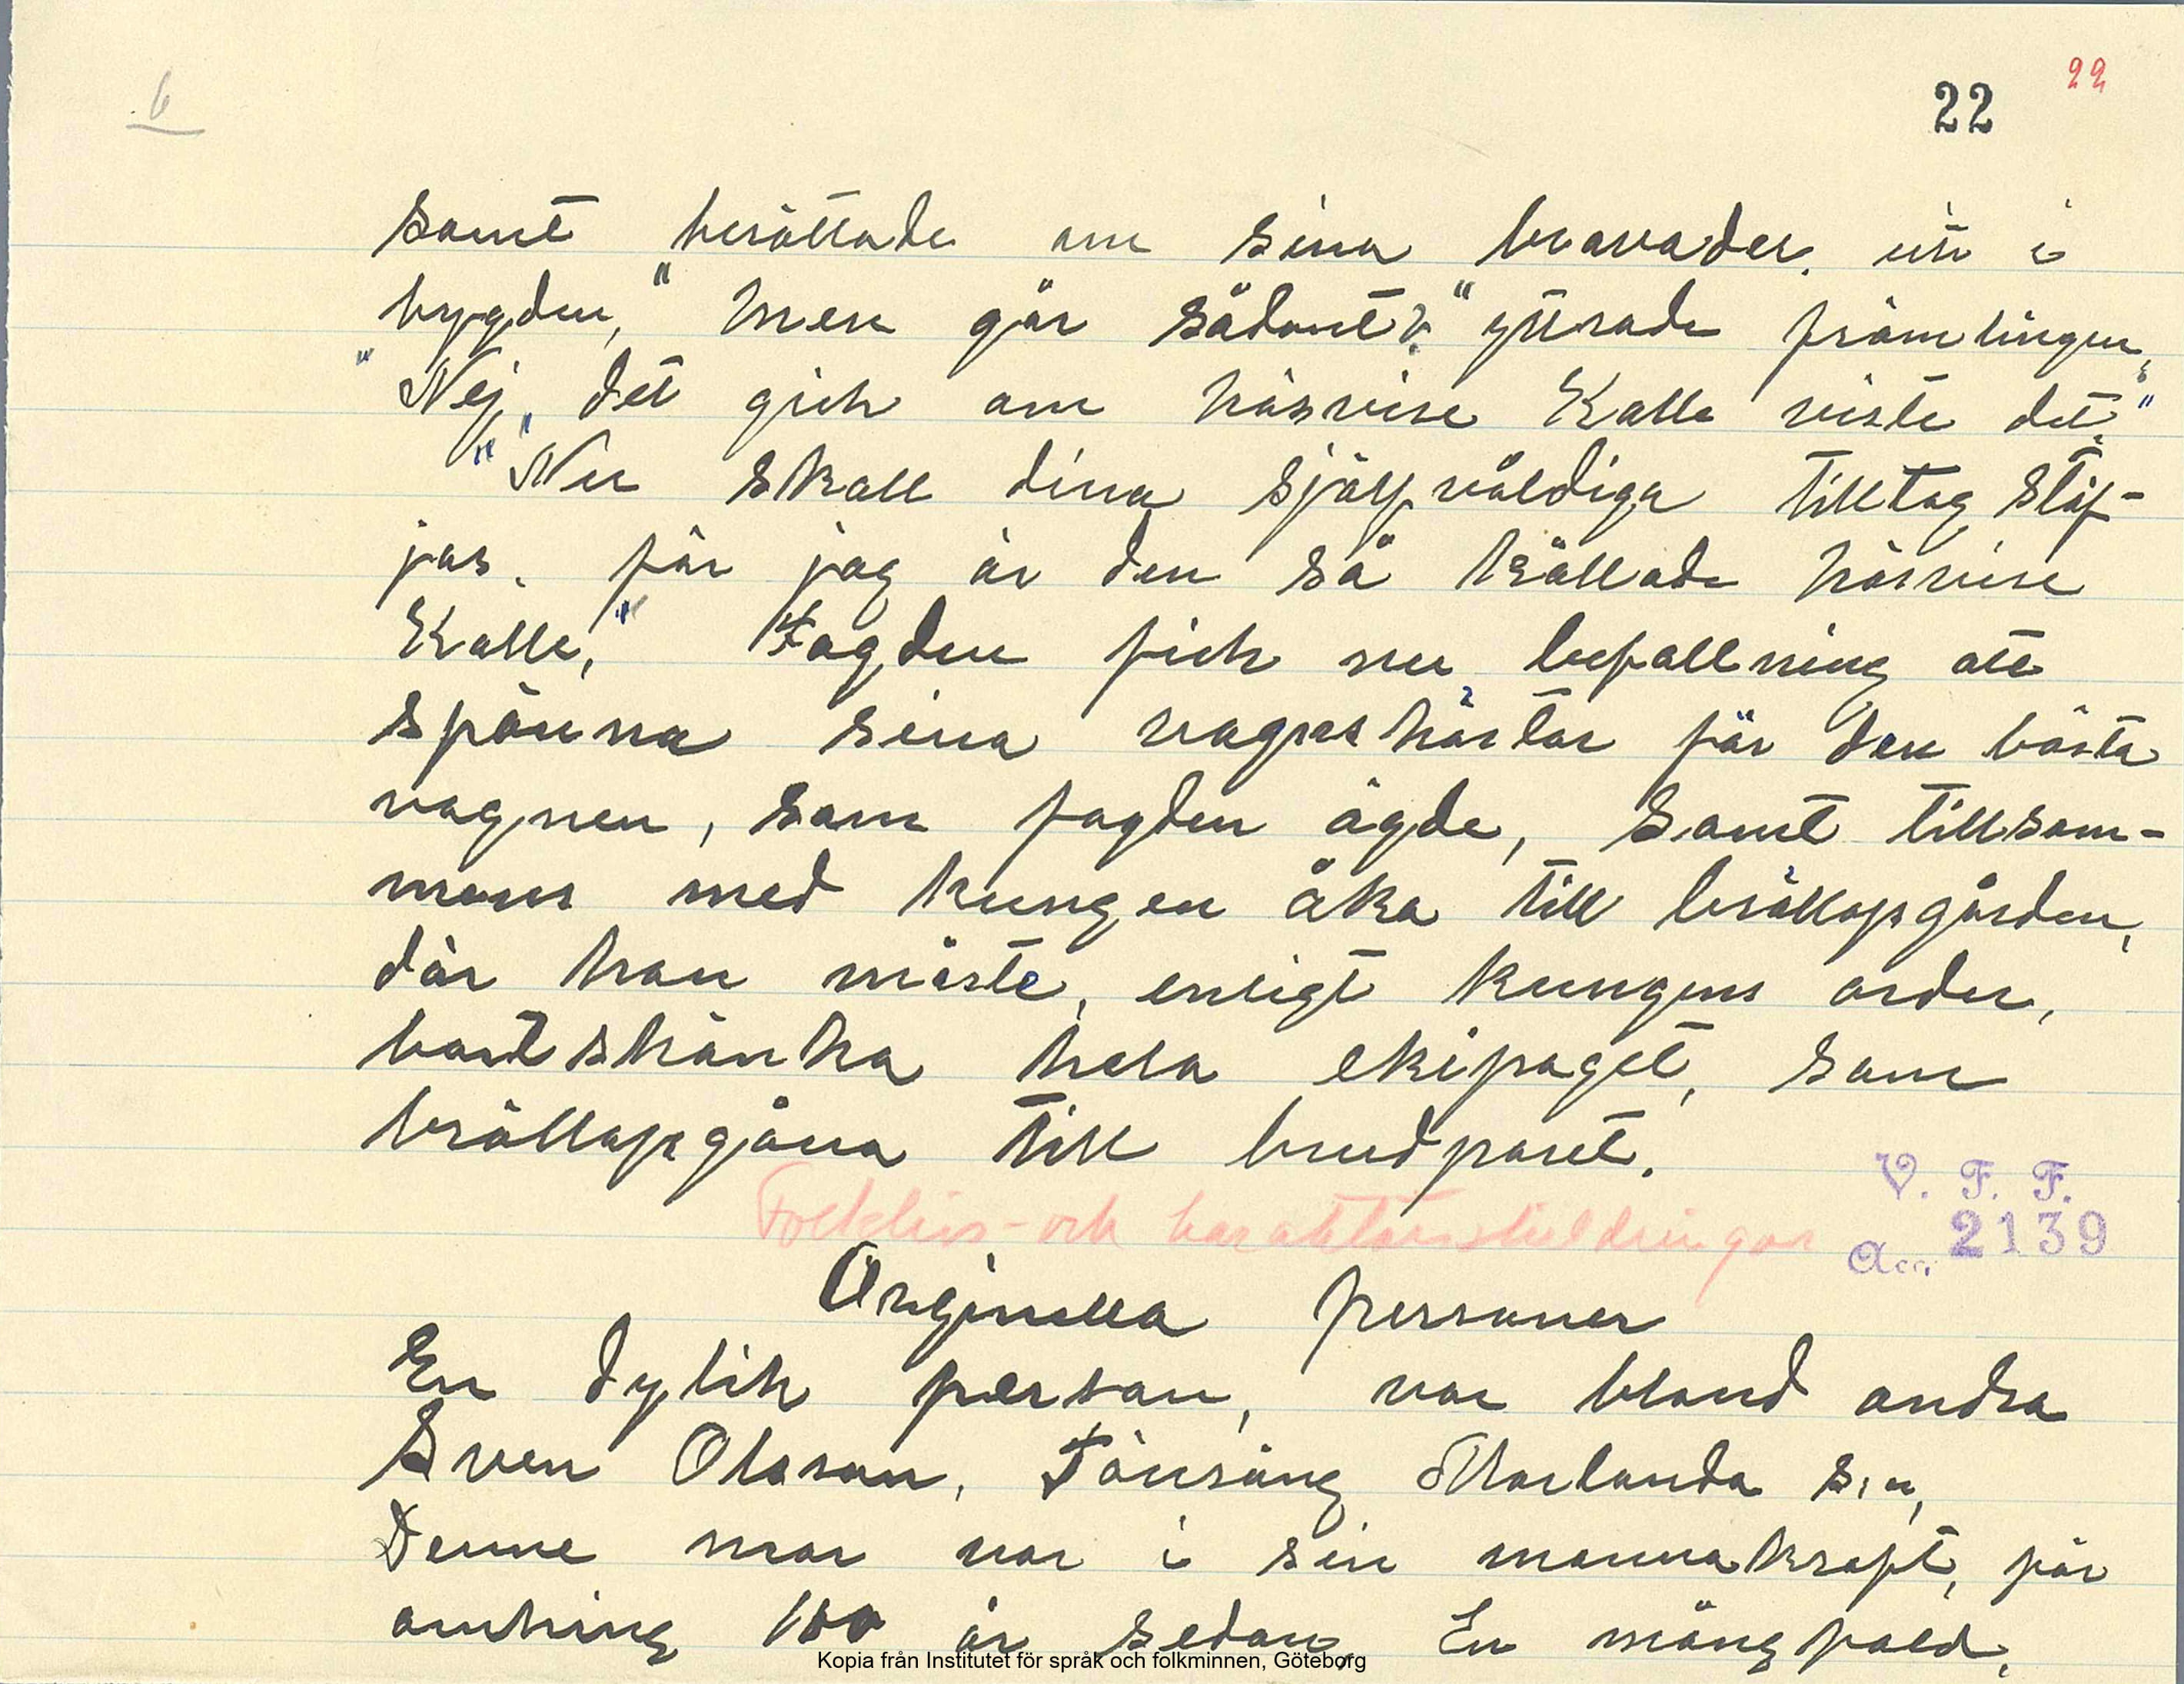 6
22 22
samt berättade om sina bravader ute i
bygden, "Men går sådant?" yttrade främlingen,
"Nej, det gick om näsvise Kalle viste det."
"Nu skall dina själfvåldiga tilltag stäf-
jas, för jag är den så kallade näsvise
Kalle," Fogden fick nu befallning att
spänna sina vagnshästar för den bästa
vagnen, som fogden ägde, samt tillsam-
mans med kungen åka till bröllopsgården,
där han måste, enligt kungens order,
bortskänka hela ekipaget, som
bröllopsgåva till brudparet.
V. F. F.
Folklivs- och karaktärsskildringar
Acc. 2139
Originella personer
En dylik person, var bland andra
Sven Olsson, Tönsäng Morlanda s:n,
Denne man var i sin mannakraft, för
omkring 100 år sedan, En mångfald,
Kopia från Institutet för språk och folkminnen, Göteborg